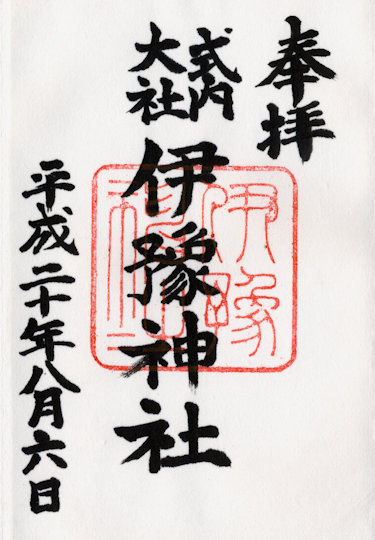 奉拝
式内
大社
伊豫神社
平成二十年八月六日
伊豫
神社